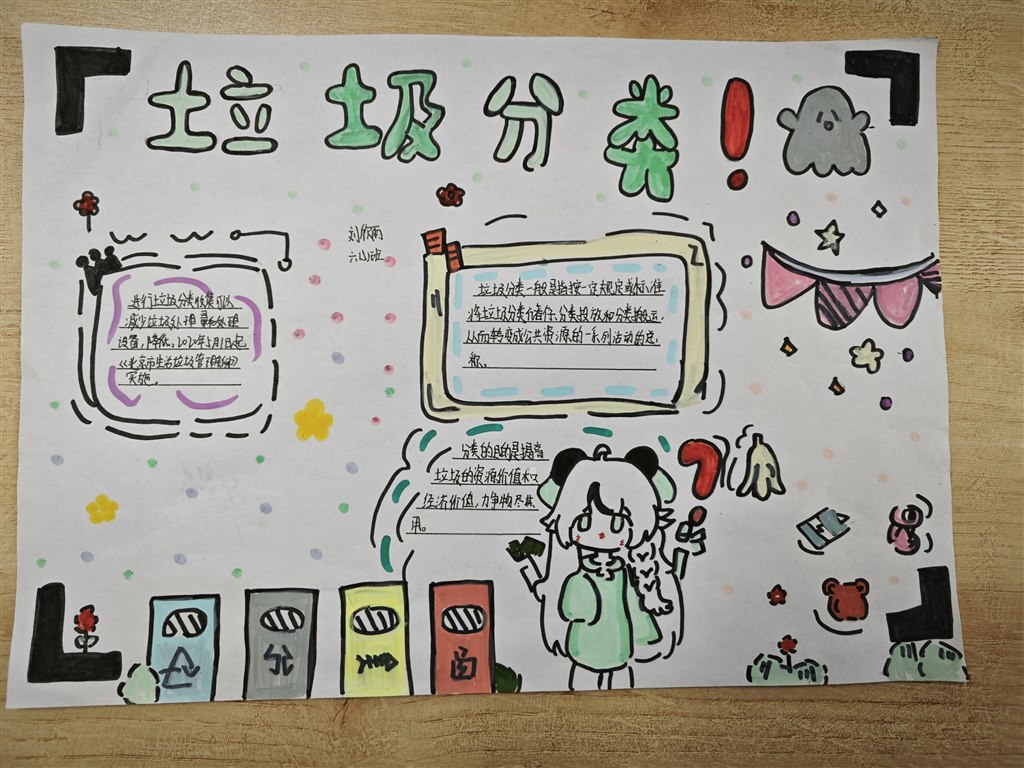 垃圾分类!
刘欣雨
六小班
进行垃圾分类收集可以
减少垃圾处理量和处理
设备,降低。2020年5月1日起
《北京市生活垃圾管理条例》
实施。
垃圾分类一般是指按一定规定或标准
将垃圾分类储存、分类投放和分类搬运,
从而转变成公共资源的一系列活动的总
称。
分类的目的是提高
垃圾的资源价值和
经济价值,力争物尽其
用。
?